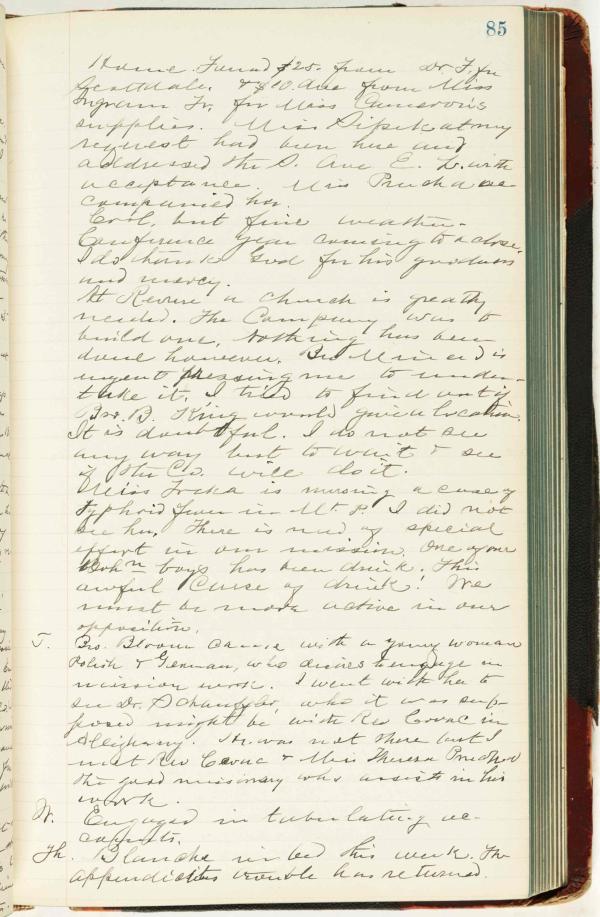 85
Home. Found $25. from Dr. F. for
Scottdale. & $10. from Miss
Ingram Tr. for Miss Cameron's
supplies. Miss Sipek at my
request had been here and
addressed the S. Ave E. L. with
acceptance. Miss Prucha ac
companied her.
Cool, but fine weather.
Conference year coming to a close.
I do thank God for his goodness
and mercy.
At Revere a church is greatly
needed. The Company was to
build one. Nothing has been
done however. Bro. is
urgent pressing me to under-
take it. I tried to find out if
Bro. B. King would give a location.
It is doubtful. I do not see
any way but to wait & see
if the Co. will do it.
Miss Focka is nursing a case of
typhoid fever in Mt. P. I did not
see her. There is need of special
effort in our mission. One of our
Bohn boys has been drunk. This
awful curse of drink! We
must be more active in our
opposition.
T. Bro. Bloom came with a young woman
Polish & German, who desires to engage in
mission work. I went with her to
see Dr. Schauffler, who it was sup-
posed might be with Rev Covac in
Allegheny. He was not there but I
met Rev Covac & Miss Theresa Prucha
the good missionary who assists in his
work.
W. Engaged in tabulating ac-
counts.
Th. Blanche in bed this week. The
appendicitis trouble has returned.